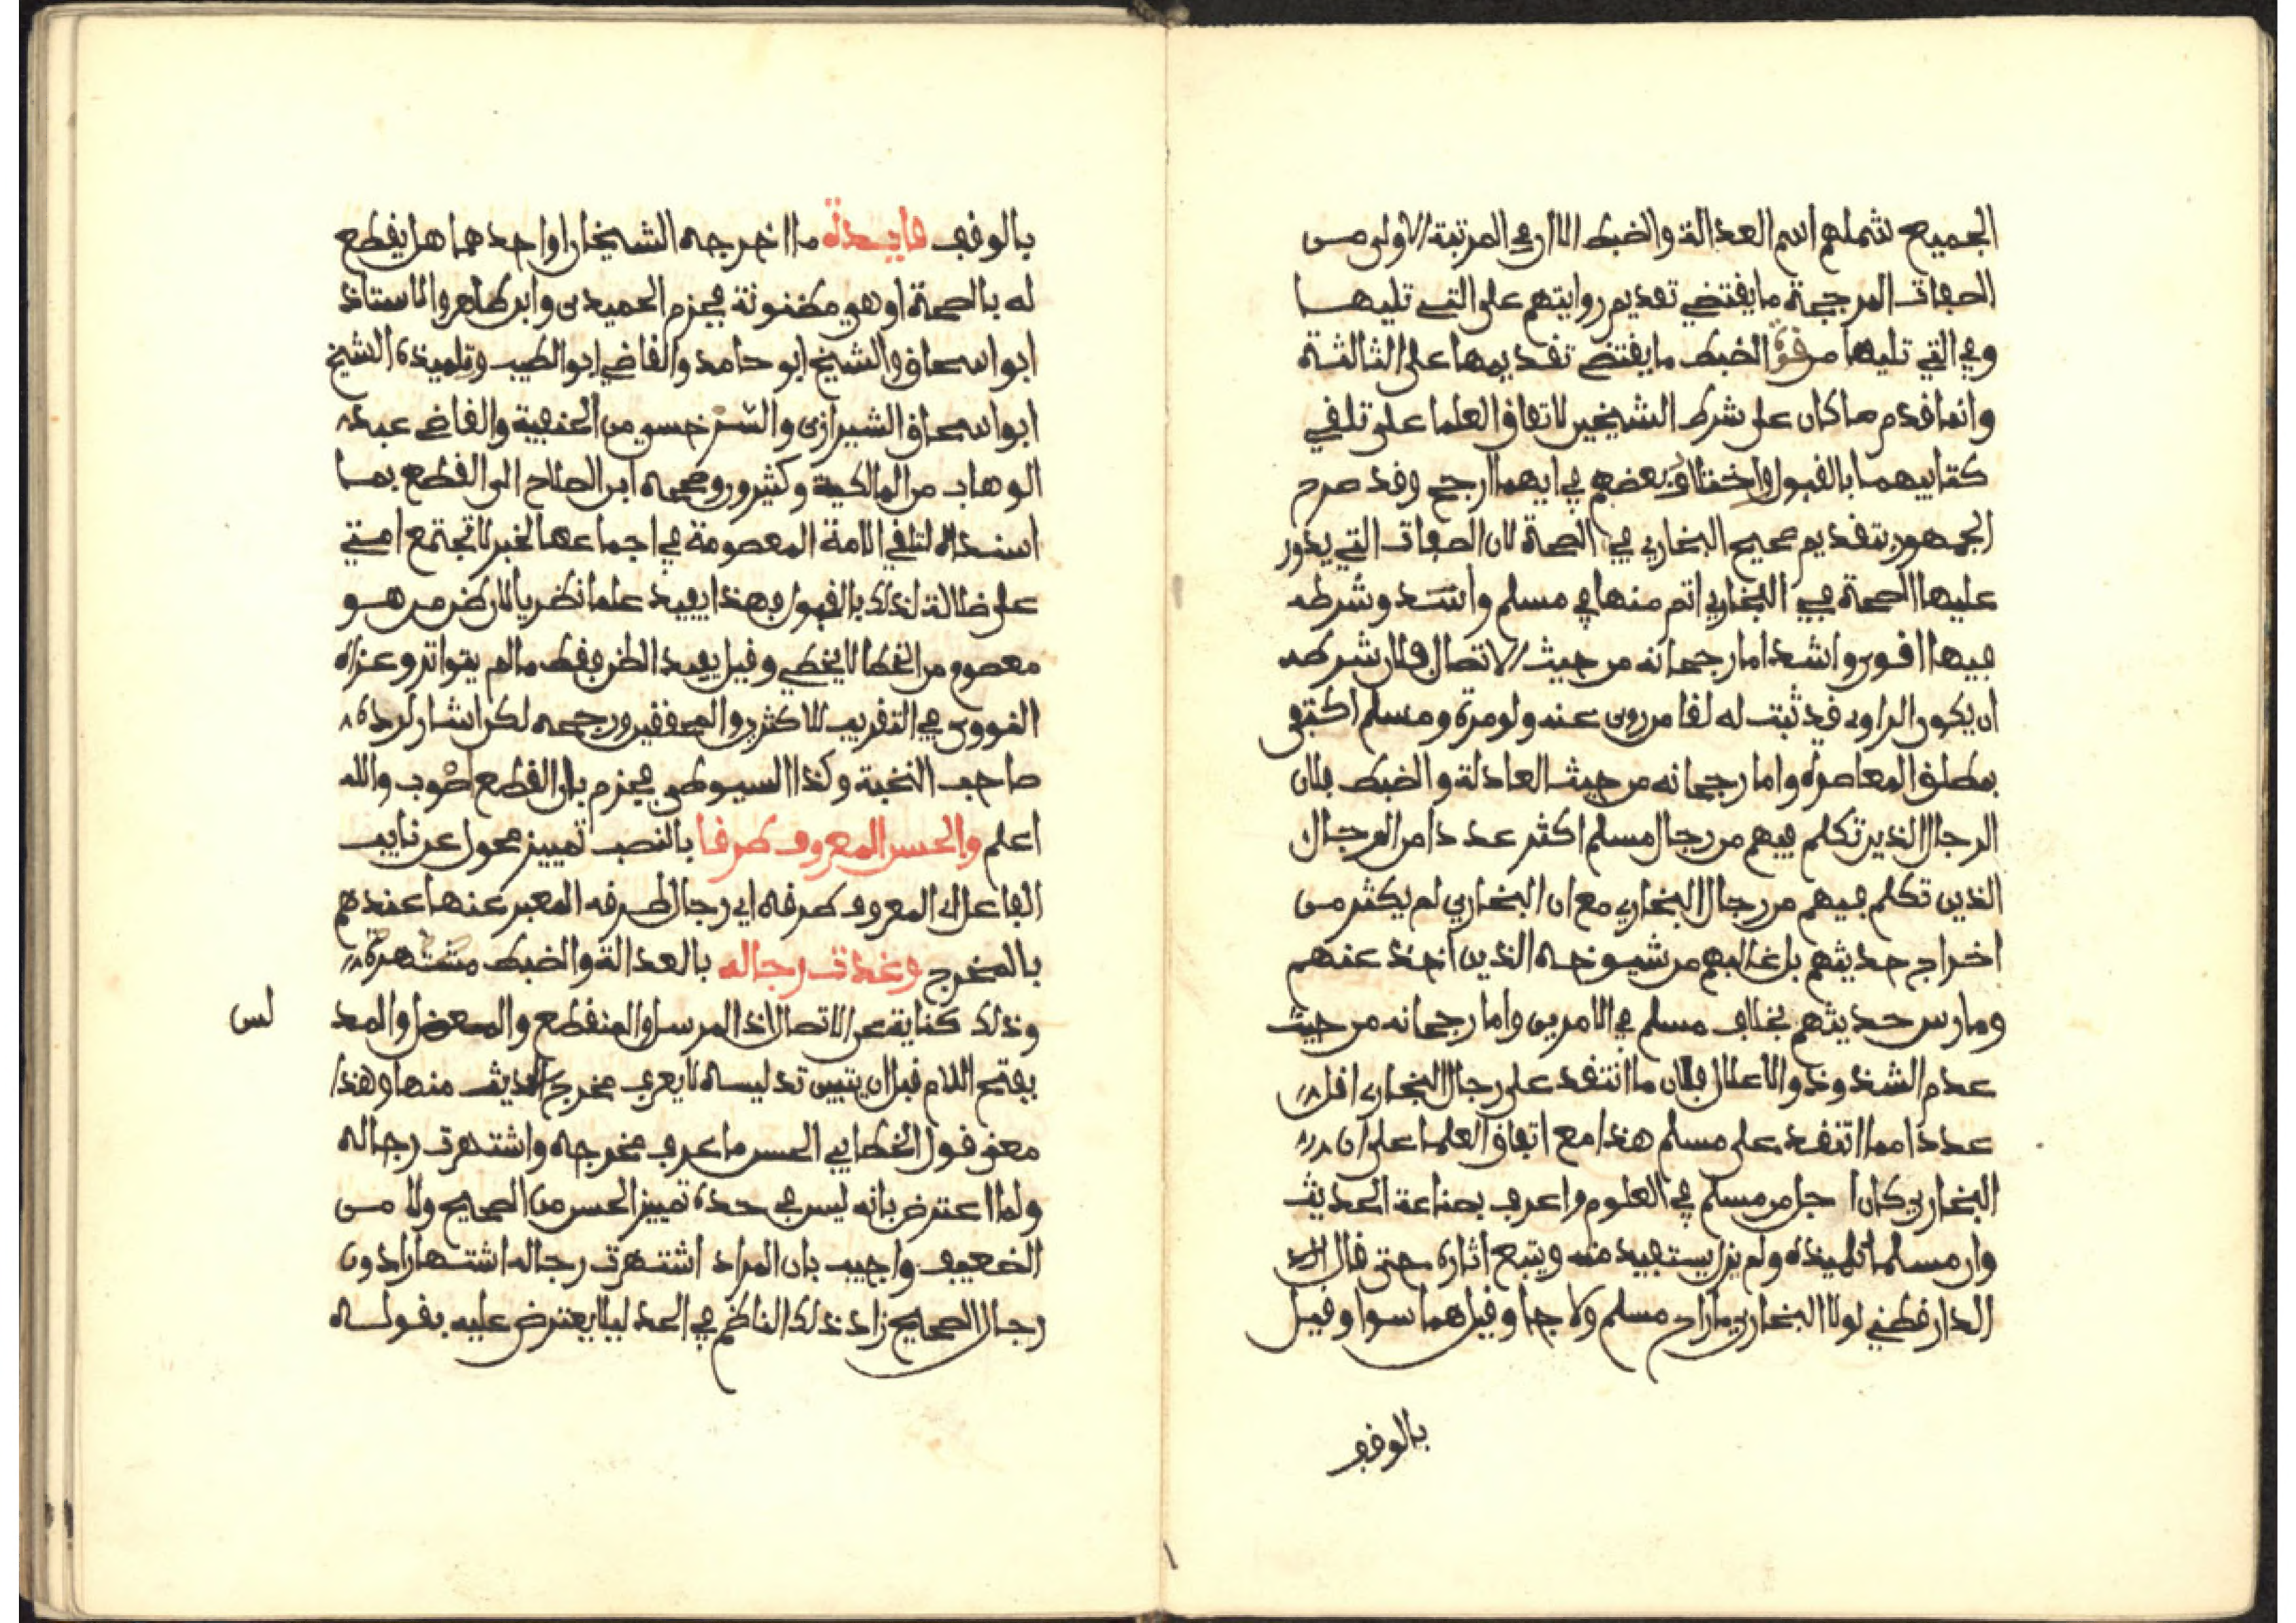 الجميع شملهم اسم العدالة والضبط الا ان في المرتبة الاولى من
الصفات المرجحة ما يقتضي تقديم روايتهم على التي تليها
وفي التي تليها من قوة الضبط ما يقتضي تقديمها على الثالثة
وانما قدم ما كان على شرط الشيخين لاتفاق العلما على تلقي
كتابيهما بالقبول واختلاف بعضهم في ايهما ارجح وقد صرح
الجمهور بتقديم صحيح البخاري في الصحة لان الصفات التي يدور
عليها الصحة في البخاري اتم منها في مسلم واشد وشرطه
فيها اقوى واشد اما رجحانه من حيث الاتصال فلان شرطه
ان يكون الراوي قد ثبت له لقا من روى عنه ولو مرة ومسلم اكتفى
بمطلق المعاصرة واما رجحانه من حيث العادلة والضبط فلان
الرجال الذين تكلم فيهم من رجال مسلم اكثر عددا من الرجال
الذين تكلم فيهم من رجال البخاري مع ان البخاري لم يكثر من
اخراج حديثهم بل غالبهم من شيوخه الذين اخذ عنهم
ومارس حديثهم بخلاف مسلم في الامرين واما رجحانه من حيث
عدم الشذوذ والاعلال فلان ما انتقد على رجال البخاري اقل
عددا مما انتقد على مسلم هذا مع اتفاق العلما على ان
البخاري كان اجل من مسلم في العلوم واعرف بصناعة الحديث
وان مسلما تلميذه ولم يزل يستفيد منه ويتبع اثاره حتى قال
الدارقطني لولا البخاري ما راح مسلم ولا جا وقيل هما سوا وقيل
بالوقف
بالوقف فايدة ما اخرجه الشيخان او احدهما هل يقطع
له بالصحة او هي مظنونة فجزم الحميدي وابن طاهر والاستاذ
ابو اسحاق والشيخ ابو حامد والقاضي ابو الطيب وتلميذه الشيخ
ابو اسحاق الشيرازي والسرخسي من الحنفية والقاضي عبد
الوهاب من المالكية وكثيرون وصححه ابن الصلاح الى القطع بما
اسنداه لتلقي الامة المعصومة في اجماعها لخبر لا تجتمع امتي
على ضلالة لذلك بالقبول فهذا يفيد علما نظريا لان ظن من هو
معصوم من الخطا لا يخطي وقيل يفيد الظن فقط ما لم يتواتر وعزاه
النووي في التقريب للاكثرين والمحققين ورجحه لكن اشار لرده
صاحب النخبة وكذا السيوطي فجزم بان القطع اصوب والله
اعلم والحسن المعروف طرقا بالنصب تمييز محول عن نايب
الفاعل اي المعروف طرقه اي رجال طرقه المعبر عنها عندهم
بالمخرج وغدت رجاله بالعدالة والضبط مشتهرة
وذلك كناية عن الاتصال اذ المرسل والمنقطع والمعضل والمد
لس
بفتح اللام قبل ان يتبين تدليسه لا يعرف مخرج الحديث منها وهذا
معنى قول الخطابي الحسن ما عرف مخرجه واشتهرت رجاله
ولما اعترض بانه ليس في حده تمييز الحسن من الصحيح ولا من
الضعيف واجيب بان المراد اشتهرت رجاله اشتهارا دون
رجال الصحيح زاد ذلك الناظم في الحد ليلا يعترض عليه بقوله